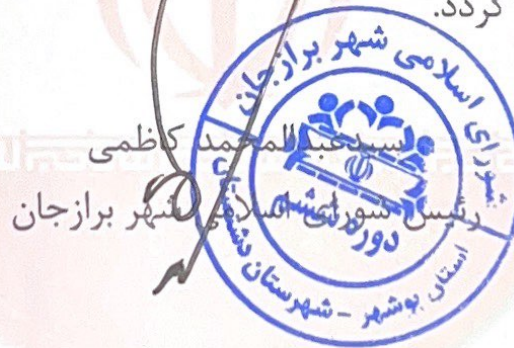 گردد.
سیدعبدالمحمد کاظمی
رئیس شورای اسلامی شهر برازجان
شورای اسلامی شهر برازجان
دوره ششم
استان بوشهر - شهرستان دشتستان